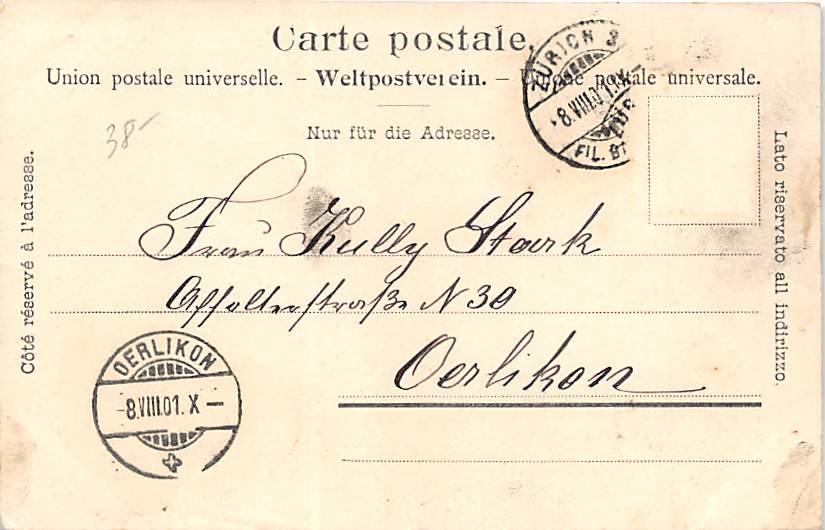 Carte postale.
Union postale universelle. – Weltpostverein. – Unione postale universale.
Nur für die Adresse.
38-
ZÜRICH 3
8.VIII.01.X–
FIL. B
Côté réservé à l'adresse.
Lato riservato all indirizzo.
Frau Kully Stark
Affolternstraße N 30
Oerlikon
OERLIKON
-8.VIII.01.X–